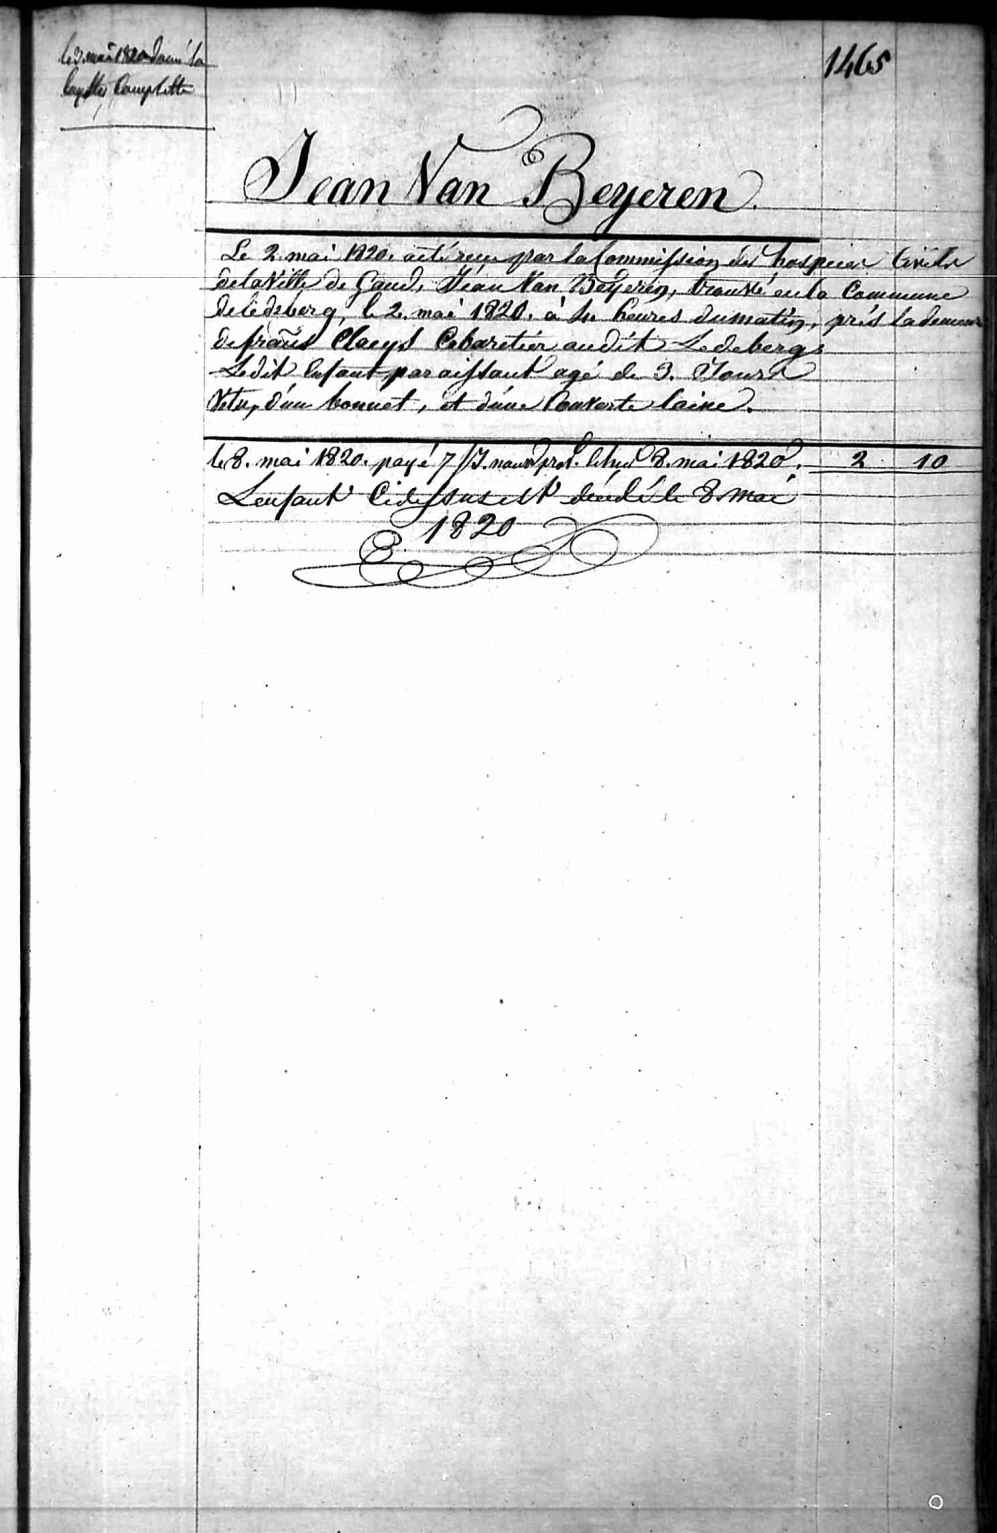 le 3. mai 1820 donné la
layette Complette
1465
Jean Van Beyeren.
Le 2. mai 1820. a eté reçu par la Commission des hospices Civils
de la Ville de Gand, Jean Van Beyeren, trouvé en la Commune
de Ledeberg, le 2. mai 1820. à 4 heures du matin, près la demeure
de frañs Claeys Cabaretier audit Ledeberg
Ledit Enfant paraissant agé de 3. Jours
Vetu, d'un bonnet, et d'une Couverte laine.
le 8. mai 1820. payé 7/J. nour 8. mai 1820. 2 10
L'enfant Cidessus est décédé le 8 Mai
1820